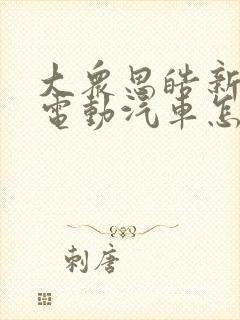 大眾思皓新
電動汽車怎
刺唐